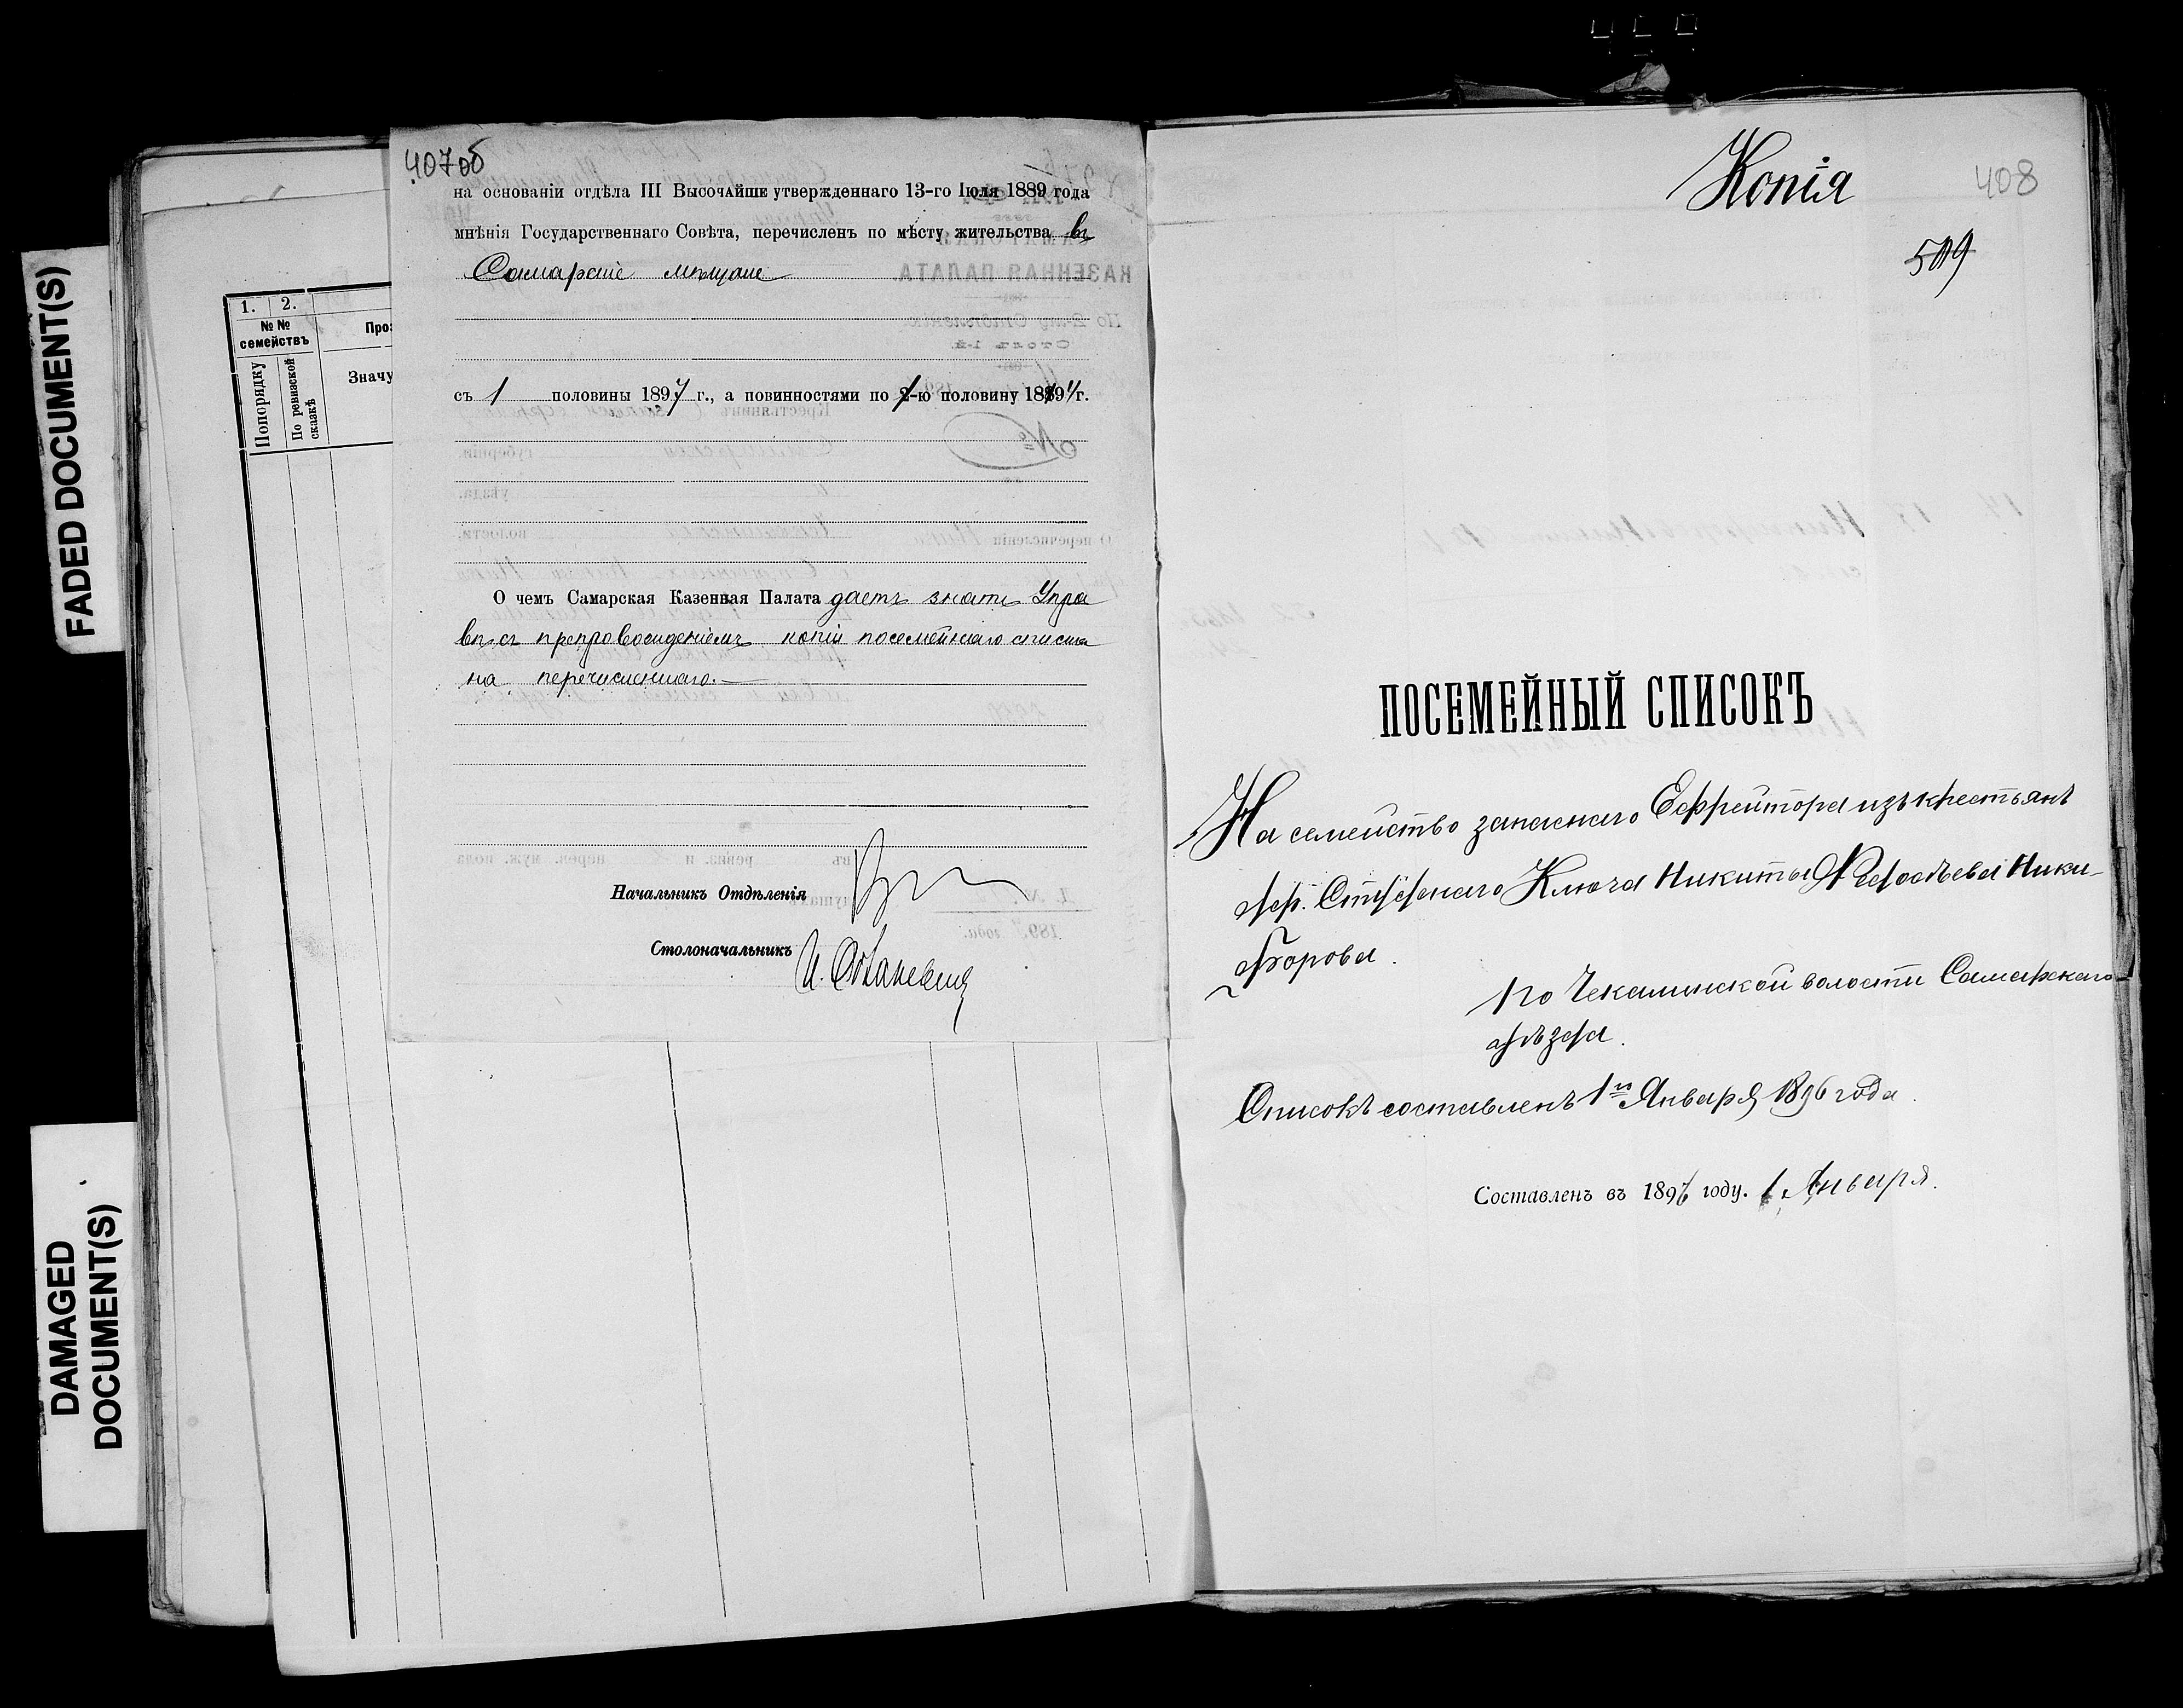 FADED DOCUMENT(S)
DAMAGED
DOCUMENT(S)
1. 2.
№ №
семействъ
Попорядку
По ревизской
сказкѣ
Проз
Значу
407об
на основаніи отдѣла III Высочайше утвержденнаго 13-го Іюля 1889 года
мнѣнія Государственнаго Совѣта, перечисленъ по мѣсту жительства въ
Самарскіе мѣщане
съ 1 половины 1897 г., а повинностями по -ю половину 189 г.
О чемъ Самарская Казенная Палата даетъ знать Упра
вѣ съ препровожденіемъ копіи посемейнаго списка
на перечисленнаго.
Начальникъ Отдѣленія
Столоначальникъ
Копія
408
509
ПОСЕМЕЙНЫЙ СПИСОКЪ
На семейство запаснаго Ефрейтора изъ крестьянъ
дер. Студенаго Ключа Никиты Федосѣева Ники-
форова.
По Чекалинской волости Самарскаго
уѣзда.
Списокъ составленъ 1го Января 1896 года.
Составленъ въ 1896 году. 1 Января.